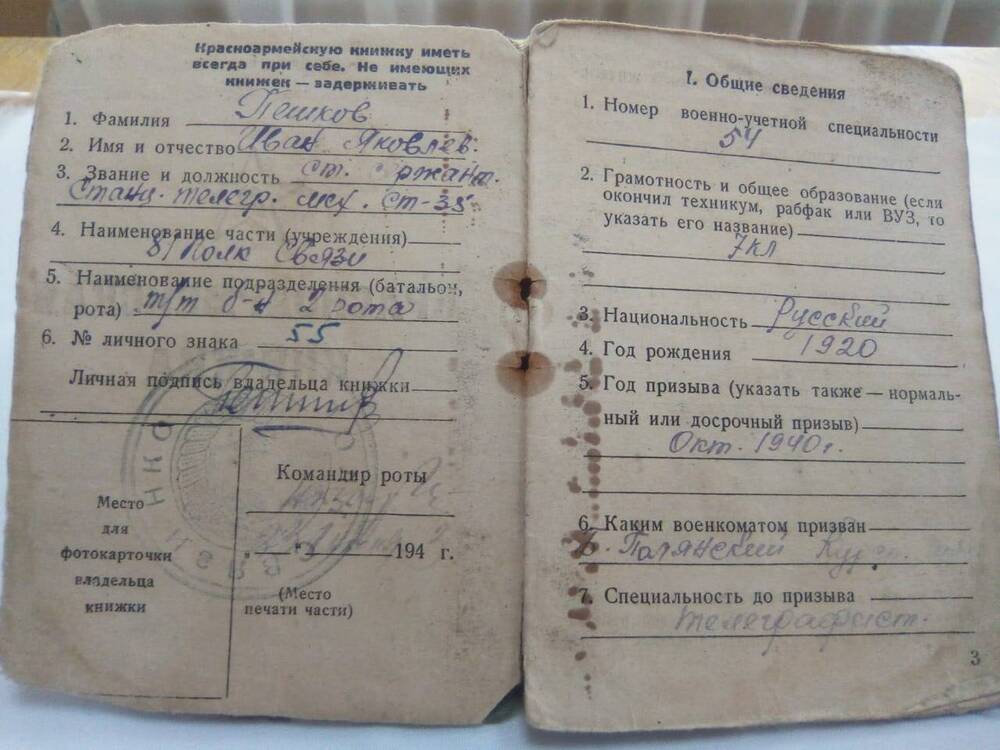 Красноармейскую книжку иметь
всегда при себе. Не имеющих
книжек — задерживать
1. Фамилия Пешков
2. Имя и отчество Иван Яковлев.
3. Звание и должность ст. сержант.
Станц. телегр. мех. СТ-35
4. Наименование части (учреждения)
81 Полк Связи
5. Наименование подразделения (батальон,
рота) т/т б-н 2 рота
6. № личного знака 55
Личная подпись владельца книжки
Место
для
фотокарточки
владельца
книжки
Командир роты
„ “ 194 г.
(Место
печати части)
НКО
I. Общие сведения
1. Номер военно-учетной специальности
54
2. Грамотность и общее образование (если
окончил техникум, рабфак или ВУЗ, то
указать его название)
7кл
3. Национальность Русский
4. Год рождения 1920
5. Год призыва (указать также — нормаль-
ный или досрочный призыв)
Окт. 1940г.
6. Каким военкоматом призван
Полянский
7. Специальность до призыва
телеграфист.
3